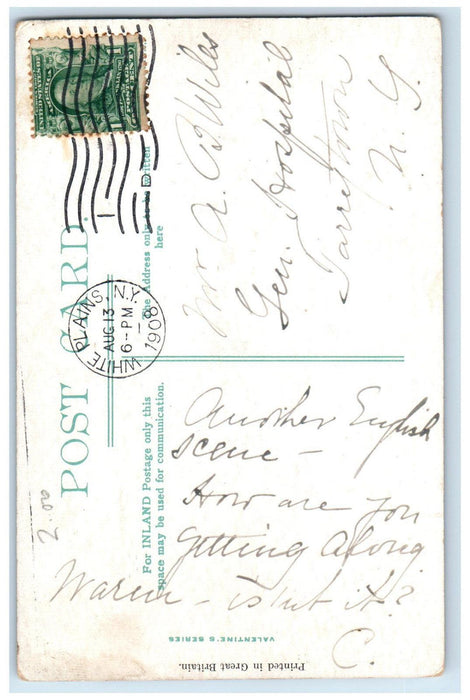 POST CARD.
For INLAND Postage only this
space may be used for communication.
The Address only to be written
here
WHITE PLAINS, N.Y.
AUG 13
6-PM
1908
1
Mr. A. B. Wiles
Gen. Hospital
Tarrytown
N. Y.
Another English
scene –
How are you
getting along
Warm – isnt it?
C.
2.00
VALENTINE'S SERIES
Printed in Great Britain.